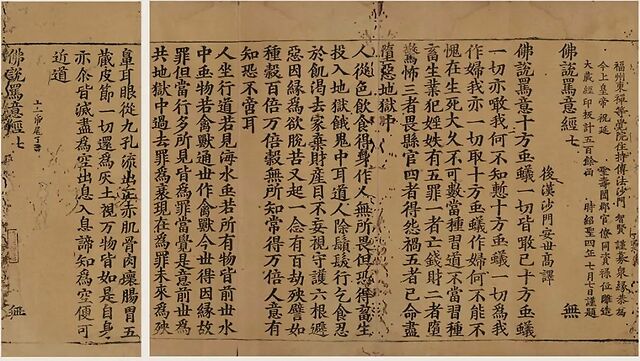 福州東禪等覺院住持傳法沙門 智賢 謹募衆緣恭爲
今上皇帝祝延 聖壽闔郡官僚同資祿位雕造
大藏經印板計五百餘函 時紹聖四年七月七日謹題
佛說罵意經七 無
後漢沙門安世高譯
佛說罵意十方虫蟻一切皆噉已十方虫蟻
一切亦噉我何不知慙十方虫蟻一切爲我
作婦我亦一切取十方虫蟻作婦何能不
愧在生死大久不可數當種習道不當習種
畜生業犯婬妷有五罪一者亡錢財二者墮
驚怖三者畏縣官四者得怨禍五者已命盡
墮惡地獄中
人從色飲食得身作人無所畏但恐得畜生
投入地獄餓鬼中耳道人除鬚髮行乞食忍
於飢渴去家棄財產目不妄視守護六根避
惡因緣爲欲脫苦又起一念有百劫殃譬如
種穀百倍万倍穀無所知常得万倍人意有
知恐不啻耳
人坐行道若見海水虫若所有物皆前世水
中虫物若禽獸通世作禽獸今世得因緣故
罪但當行多所見皆爲罪當覺是意前世爲
共地獄中過去罪爲衰現在爲罪未來爲殃
鼻耳眼從九孔流出正赤肌骨肉壞腸胃五
藏皮節一切還爲灰土視万物皆如是自身
亦尒皆滅盡爲空出息入息諦知爲空便可
近道
佛說罵意經七 無